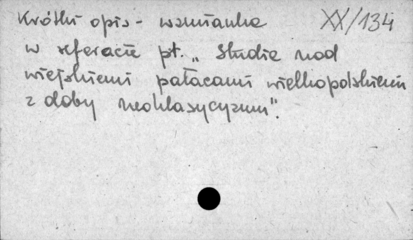 Krótki opis - wzmianka XX/134
w referacie pt. „Studia nad
wiejskiemi pałacami wielkopolskiemi
z doby neoklasycyzmu".